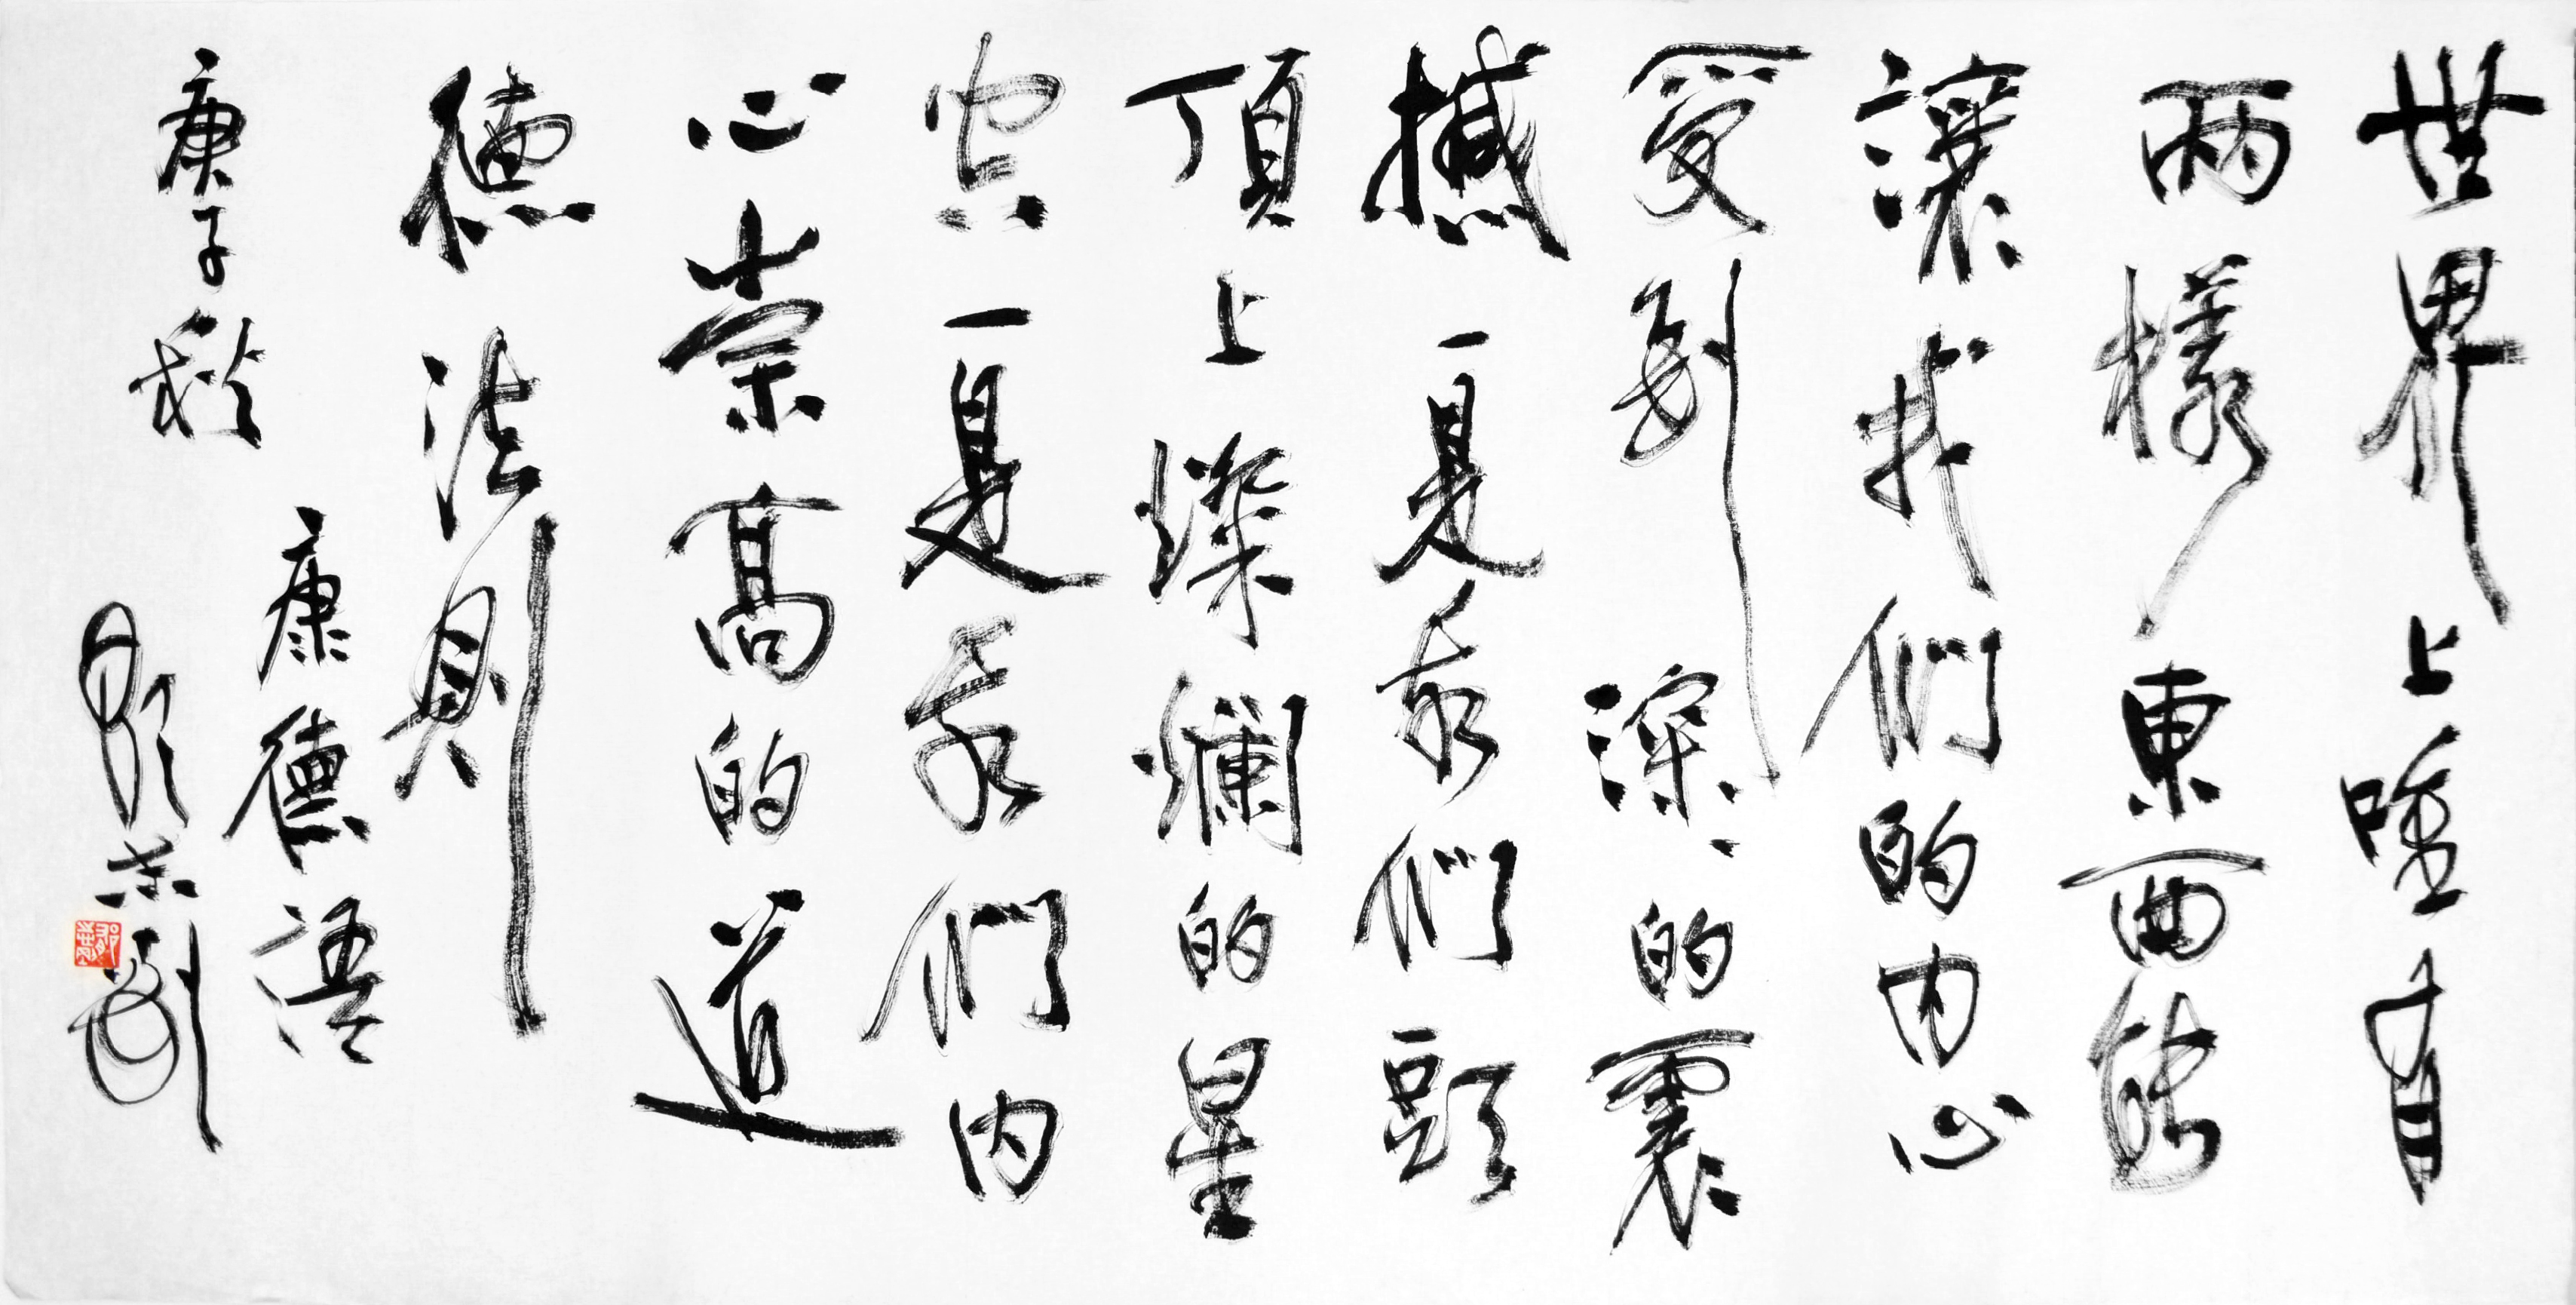 世界上唯有
兩樣東西能
讓我們的内心
受到深深的震
撼一是我們頭
頂上燦爛的星
空一是我們内
心崇高的道
德法則
康德語
庚子秋